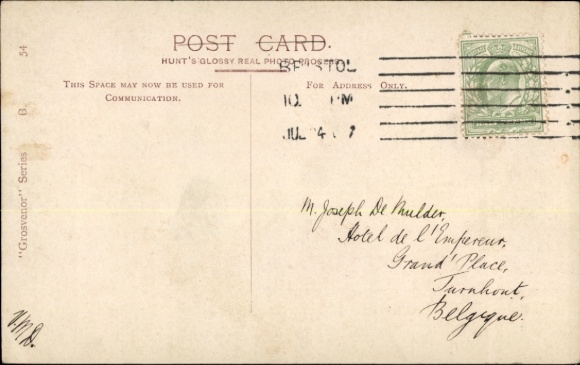 POST CARD.
HUNT'S GLOSSY REAL PHOTO PROCESS
BRISTOL
THIS SPACE MAY NOW BE USED FOR
COMMUNICATION.
FOR ADDRESS ONLY.
PM
JUL 4 07
"Grosvenor" Series B. 54
M. Joseph De Mulder,
Hotel de l'Empereur,
Grand' Place,
Turnhout,
Belgique.